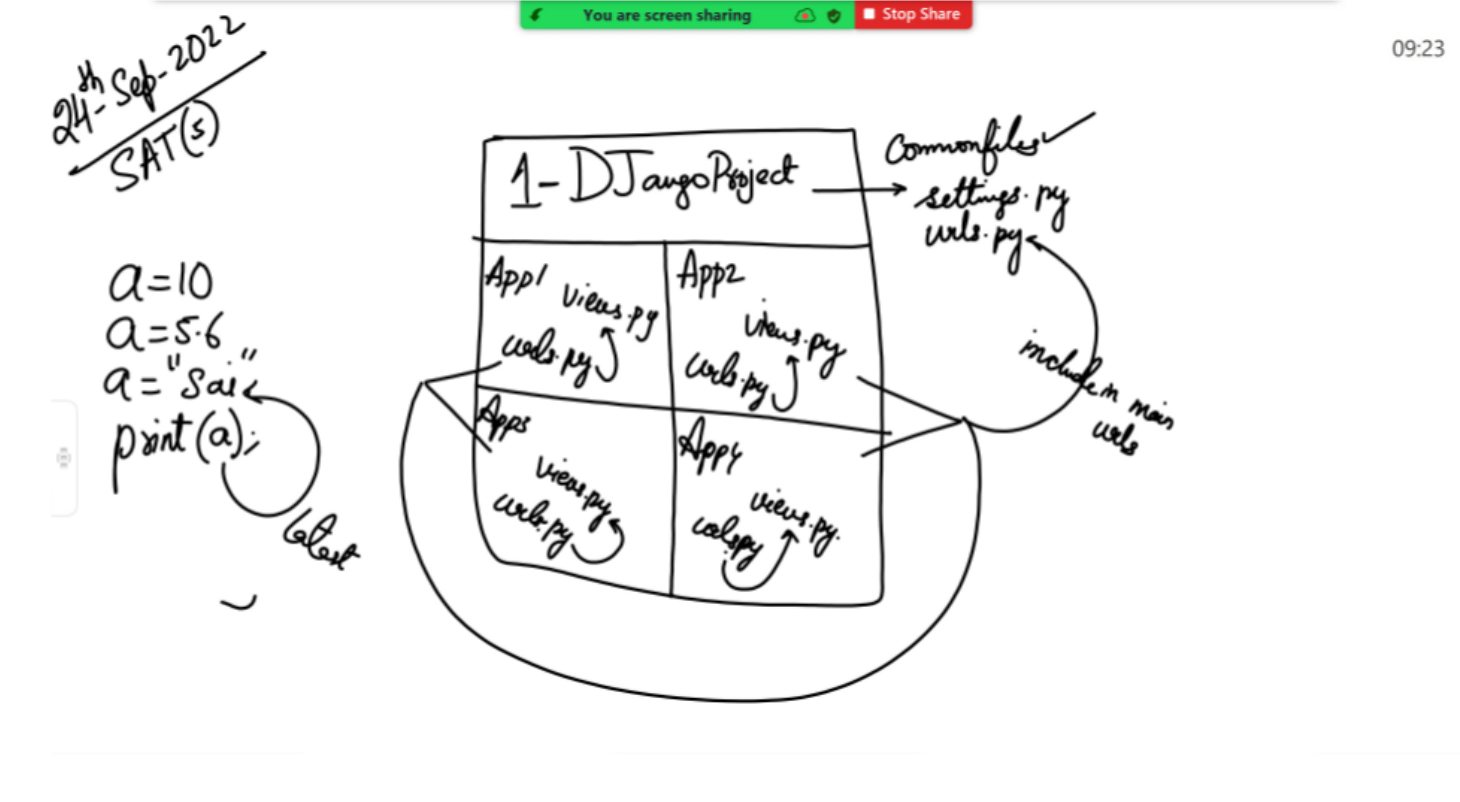 You are screen sharing
Stop Share
09:23
24th-Sep-2022
SAT(s)
a=10
a=5.6
a="Sai"
print(a);
latest
1-DJangoProject
Commonfiles
settings.py
urls.py
App1
views.py
urls.py
App2
views.py
urls.py
App3
views.py
urls.py
App4
views.py.
urls.py
include in main
urls